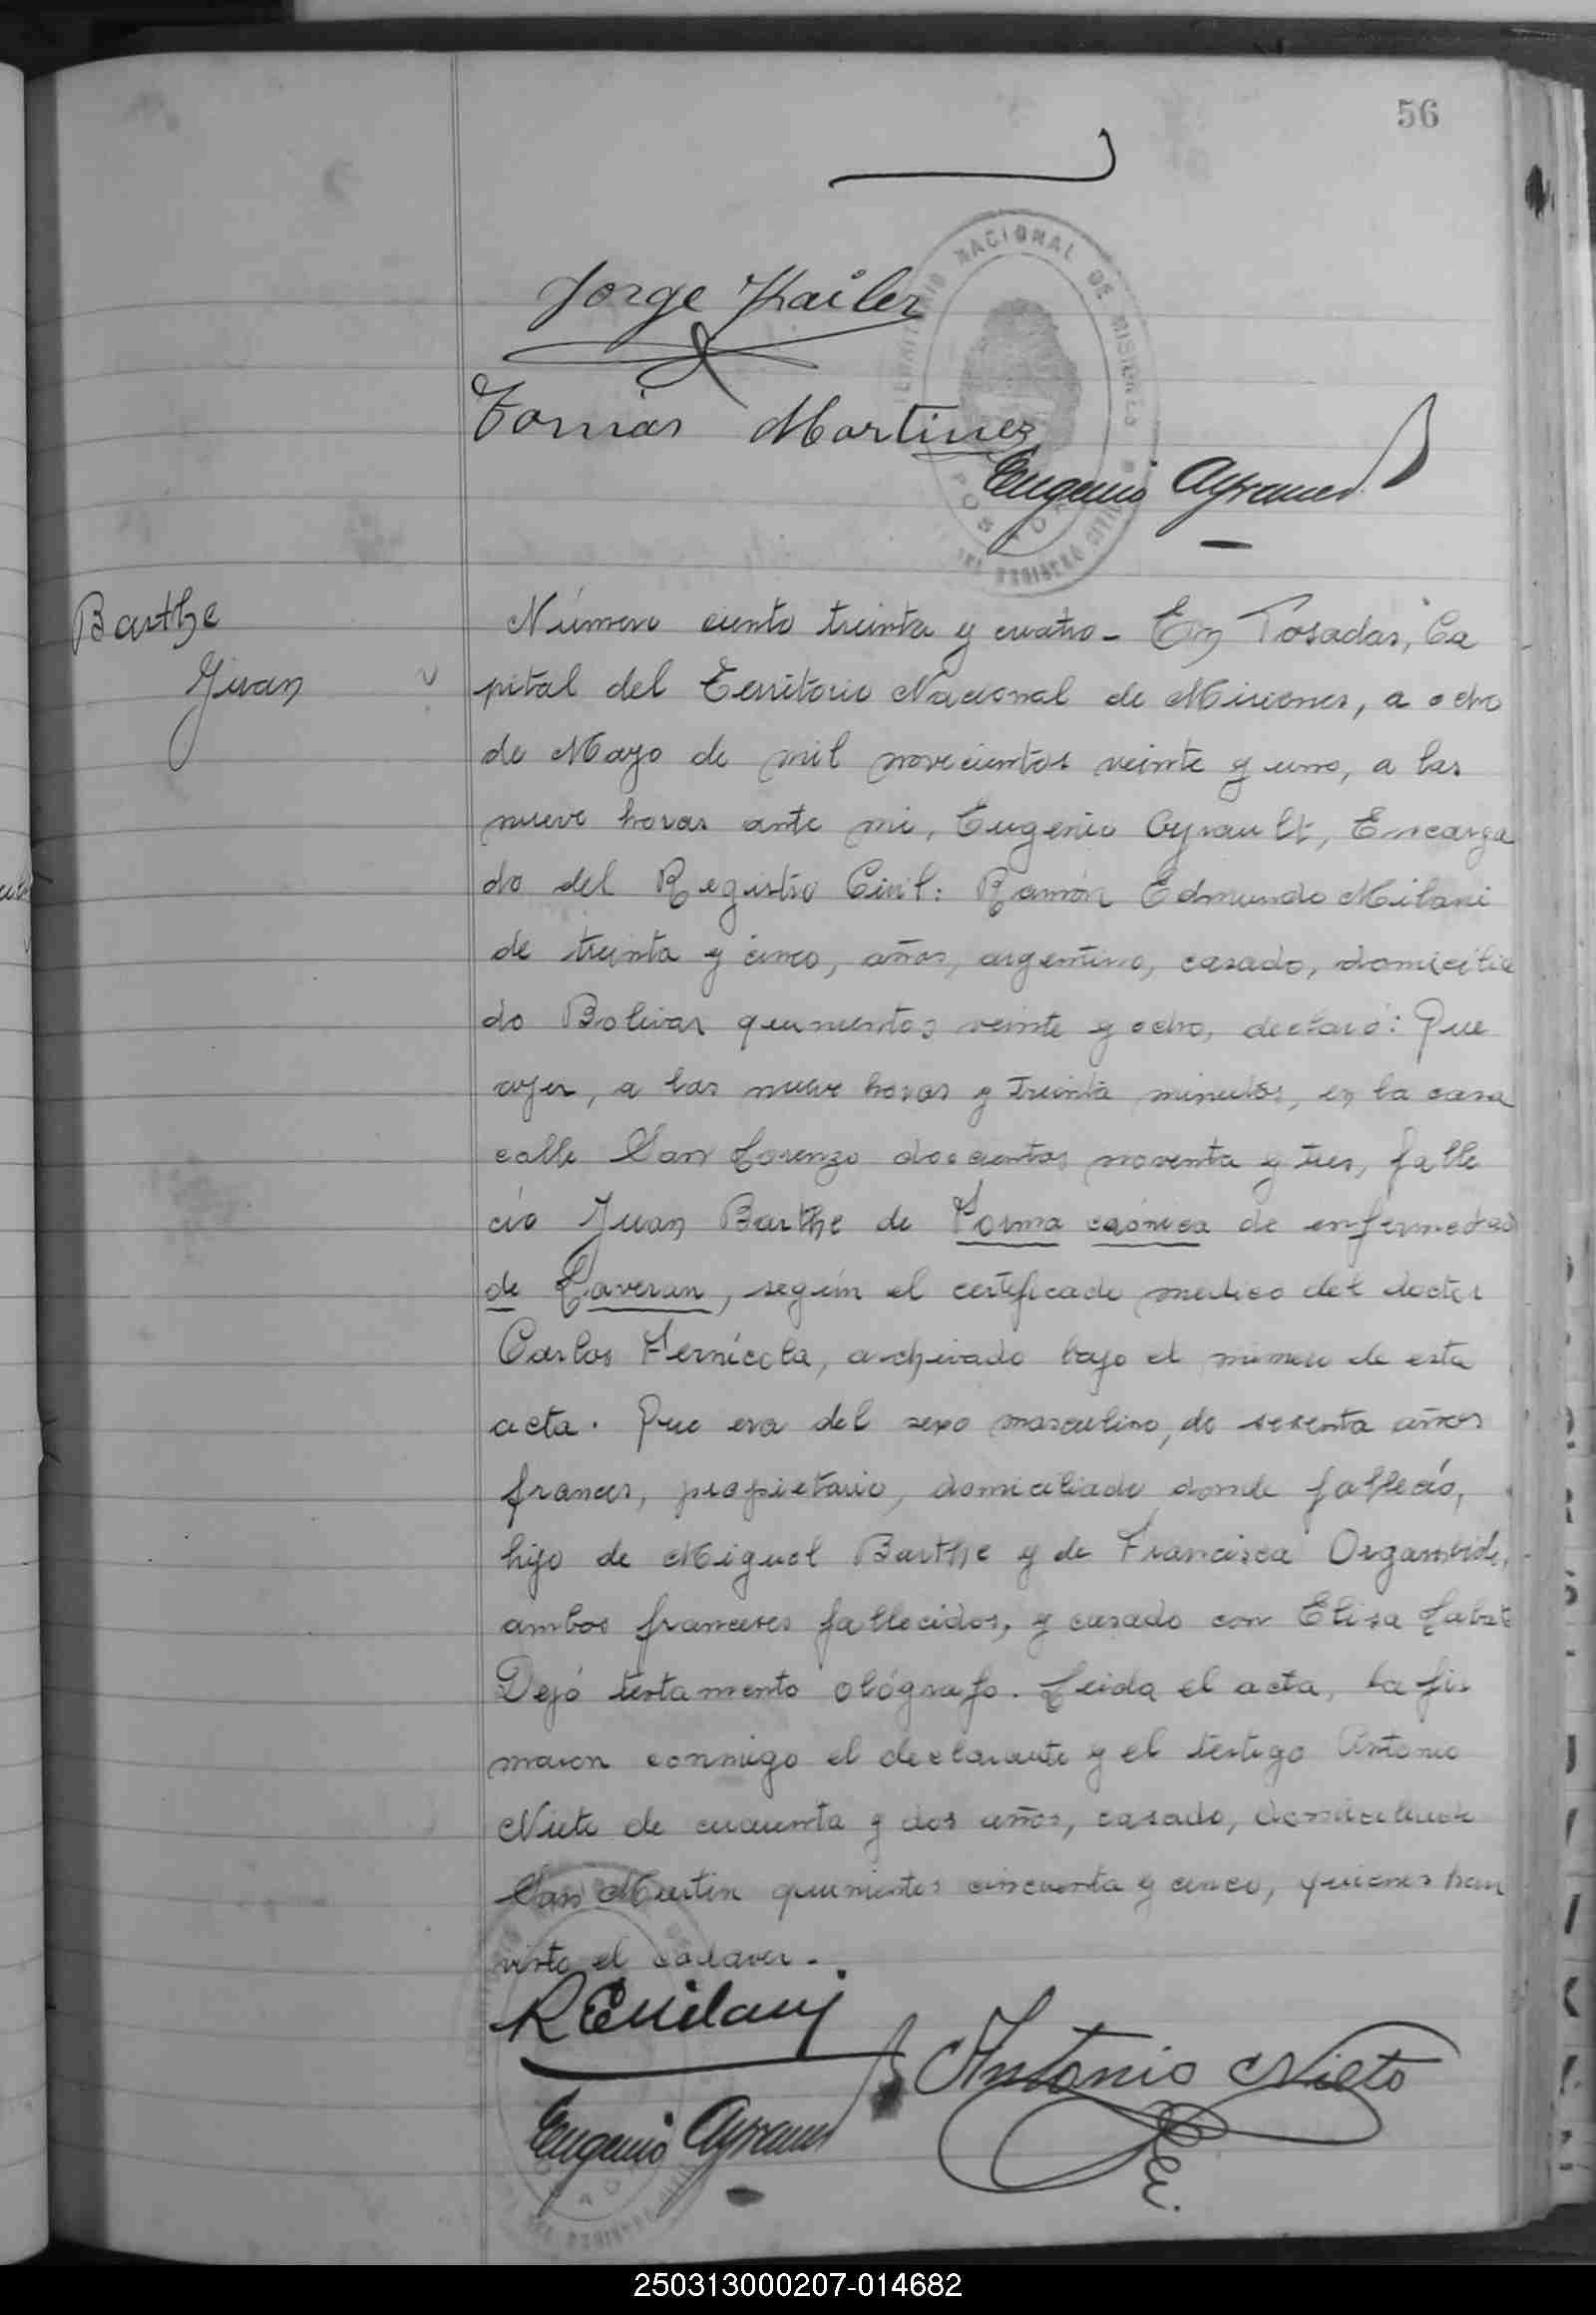 56
TERRITORIO NACIONAL DE MISIONES
Jorge Kailer
Tomás Martinez
Eugenio Ayrault
Barthe
Juan
Número ciento treinta y cuatro - En Posadas, Ca
pital del Territorio Nacional de Misiones, a ocho
de Mayo de mil novecientos veinte y uno, a las
nueve horas ante mi, Eugenio Ayrault, Encarga
do del Registro Civil: Ramón Edmundo Milani
de treinta y cinco, años, argentino, casado, domicilia
do Bolivar quinientos veinte y ocho, declaró: Que
ayer, a las nueve horas y treinta minutos, en la casa
calle San Lorenzo doscientos noventa y tres, falle
cio Juan Barthe de Forma crónica de enfermedad
de Laveran, según el certificado medico del doctor
Carlos Fernícola, archivado bajo el número de esta
acta. Que era del sexo masculino, de sesenta años
frances, propietario, domiciliado donde falleció,
hijo de Miguel Barthe y de Francisca Organvide,
ambos franceses fallecidos, y casado con Elisa Labat
Dejó testamento ológrafo. Leida el acta, la fir
maron conmigo el declarante y el testigo Antonio
Nieto de cuarenta y dos años, casado, domiciliado
San Martin quinientos cincuenta y cinco, quienes han
visto el cadaver -.
R E Milani
Antonio Nieto
Eugenio Ayrault
250313000207-014682